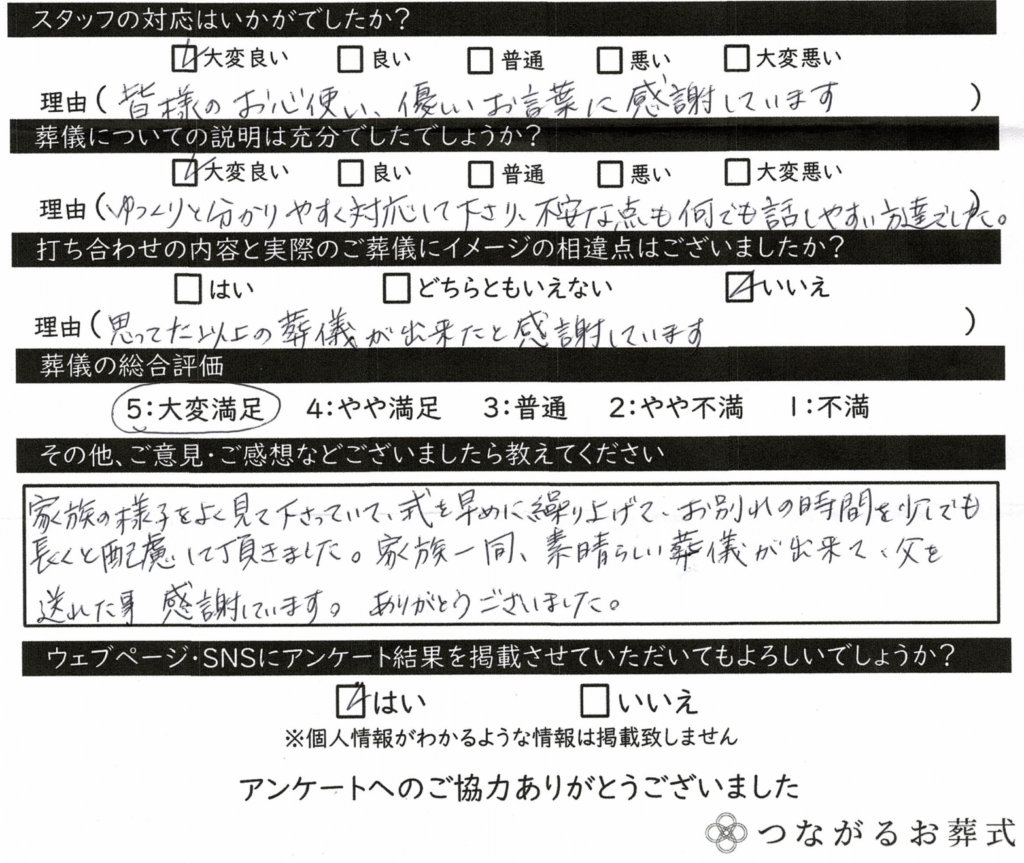 スタッフの対応はいかがでしたか?
大変良い 良い 普通 悪い 大変悪い
理由(皆様のお心使い、優しいお言葉に感謝しています)
葬儀についての説明は充分でしたでしょうか?
大変良い 良い 普通 悪い 大変悪い
理由(ゆっくりと分かりやすく対応して下さり、不安な点も何でも話しやすい方達でした。)
打ち合わせの内容と実際のご葬儀にイメージの相違点はございましたか?
はい どちらともいえない いいえ
理由(思ってた以上の葬儀が出来たと感謝しています)
葬儀の総合評価
5:大変満足 4:やや満足 3:普通 2:やや不満 1:不満
その他、ご意見・ご感想などございましたら教えてください
家族の様子をよく見て下さっていて、式を早めに繰り上げて、お別れの時間を少しでも
長くと配慮して頂きました。家族一同、素晴らしい葬儀が出来て、父を
送れた事 感謝しています。 ありがとうございました。
ウェブページ・SNSにアンケート結果を掲載させていただいてもよろしいでしょうか?
はい いいえ
※個人情報がわかるような情報は掲載致しません
アンケートへのご協力ありがとうございました
つながるお葬式